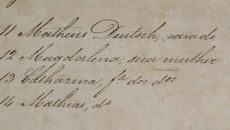 11 Matheus Deutsch, casado
12 Magdalena, sua mulher
13 Catharina, fª dos dos
14 Mathias, dº